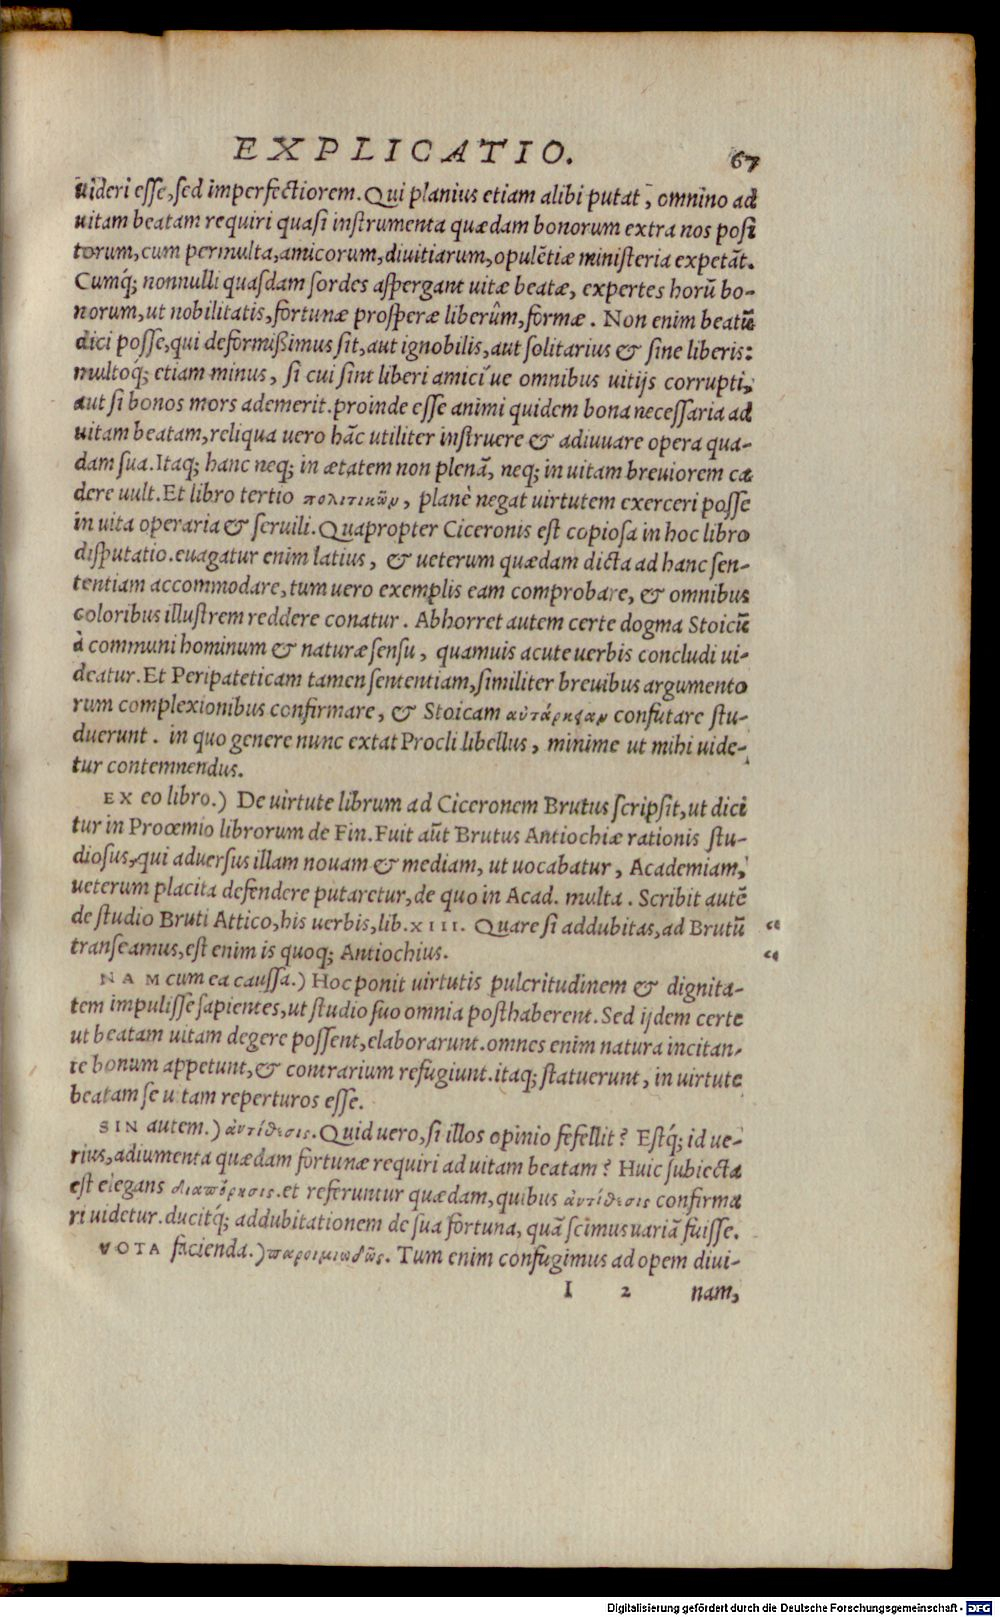 EXPLICATIO. 67
uideri esse, sed imperfectiorem. Qui planius etiam alibi putat, omnino ad
uitam beatam requiri quasi instrumenta quædam bonorum extra nos posi
torum, cum permulta, amicorum, diuitiarum, opulētiæ ministeria expetāt.
Cumq́; nonnulli quasdam sordes aspergant uitæ beatæ, expertes horū bo-
norum, ut nobilitatis, fortunæ prosperæ liberûm, formæ. Non enim beatū
dici posse, qui deformißimus sit, aut ignobilis, aut solitarius & sine liberis:
multoq́; etiam minus, si cui sint liberi amici ue omnibus uitijs corrupti,
aut si bonos mors ademerit. proinde esse animi quidem bona necessaria ad
uitam beatam, reliqua uero hāc utiliter instruere & adiuuare opera qua-
dam sua. Itaq; hanc neq; in ætatem non plenā, neq; in uitam breuiorem ca
dere uult. Et libro tertio πολιτικῶν, planè negat uirtutem exerceri posse
in uita operaria & seruili. Quapropter Ciceronis est copiosa in hoc libro
disputatio. euagatur enim latius, & ueterum quædam dicta ad hanc sen-
tentiam accommodare, tum uero exemplis eam comprobare, & omnibus
coloribus illustrem reddere conatur. Abhorret autem certe dogma Stoicū
à communi hominum & naturæ sensu, quamuis acute uerbis concludi ui-
deatur. Et Peripateticam tamen sententiam, similiter breuibus argumento
rum complexionibus confirmare, & Stoicam αὐτάρκειαν confutare stu-
duerunt. in quo genere nunc extat Procli libellus, minime ut mihi uide-
tur contemnendus.
EX eo libro.) De uirtute librum ad Ciceronem Brutus scripsit, ut dici
tur in Proœmio librorum de Fin. Fuit aūt Brutus Antiochiæ rationis stu-
diosus, qui aduersus illam nouam & mediam, ut uocabatur, Academiam,
ueterum placita defendere putaretur, de quo in Acad. multa. Scribit autē
de studio Bruti Attico, his uerbis, lib. XIII. Quare si addubitas, ad Brutū “
transeamus, est enim is quoq; Antiochius. “
NAM cum ea caussa.) Hoc ponit uirtutis pulcritudinem & dignita-
tem impulisse sapientes, ut studio suo omnia posthaberent. Sed ijdem certe
ut beatam uitam degere possent, elaborarunt. omnes enim natura incitan-
te bonum appetunt, & contrarium refugiunt. itaq; statuerunt, in uirtute
beatam se u tam reperturos esse.
SIN autem.) ἀντίθεσις. Quid uero, si illos opinio fefellit? Estq́; id ue-
rius, adiumenta quædam fortunæ requiri ad uitam beatam? Huic subiecta
est elegans διαπόρησις. et referuntur quædam, quibus ἀντίθεσις confirma
ri uidetur. ducitq́; addubitationem de sua fortuna, quā scimus uariā fuisse.
VOTA facienda.) παροιμιωδῶς. Tum enim confugimus ad opem diui-
I 2 nam,
Digitalisierung gefördert durch die Deutsche Forschungsgemeinschaft - DFG